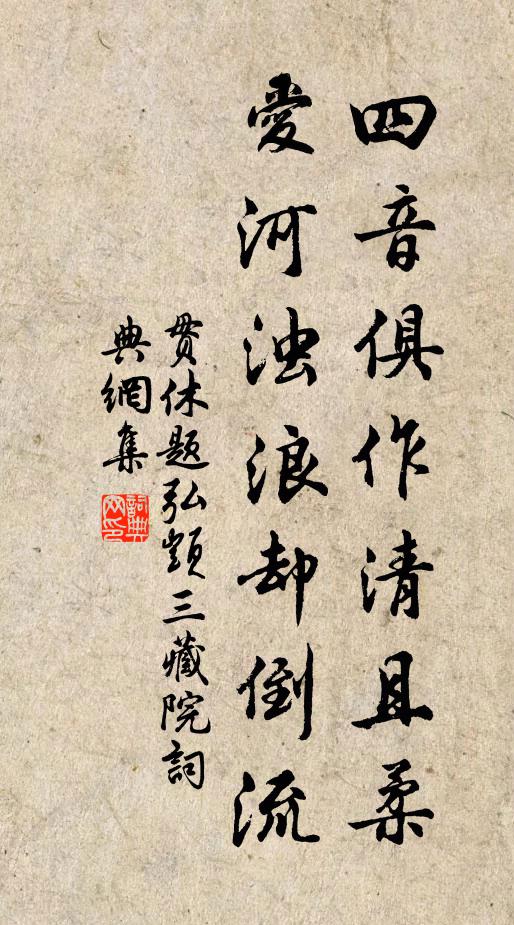 四音俱作清且柔
愛河浊浪却倒流
贯休题弘顗三藏院詞
典網集
詞典网印